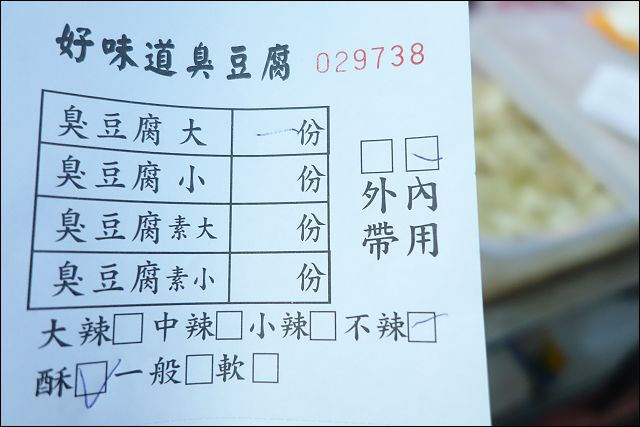 好味道臭豆腐 029738
臭豆腐 大 一份
臭豆腐 小 份
臭豆腐素大 份
臭豆腐素小 份
外帶 內用
大辣 中辣 小辣 不辣
酥 一般 軟